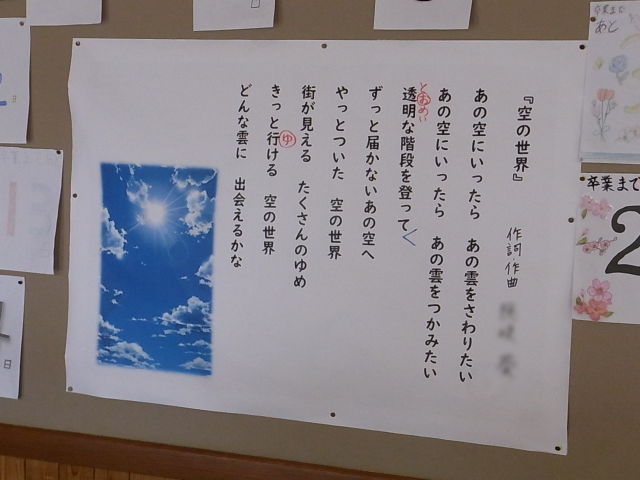 『空の世界』
作詞・作曲
あの空にいったら あの雲をさわりたい
あの空にいったら あの雲をつかみたい
とおめい
透明な階段を登って
ずっと届かないあの空へ
やっとついた 空の世界
街が見える たくさんのゆめ
ゆ
きっと行ける 空の世界
どんな雲に 出会えるかな
卒業まで
あと
卒業まで
2
日